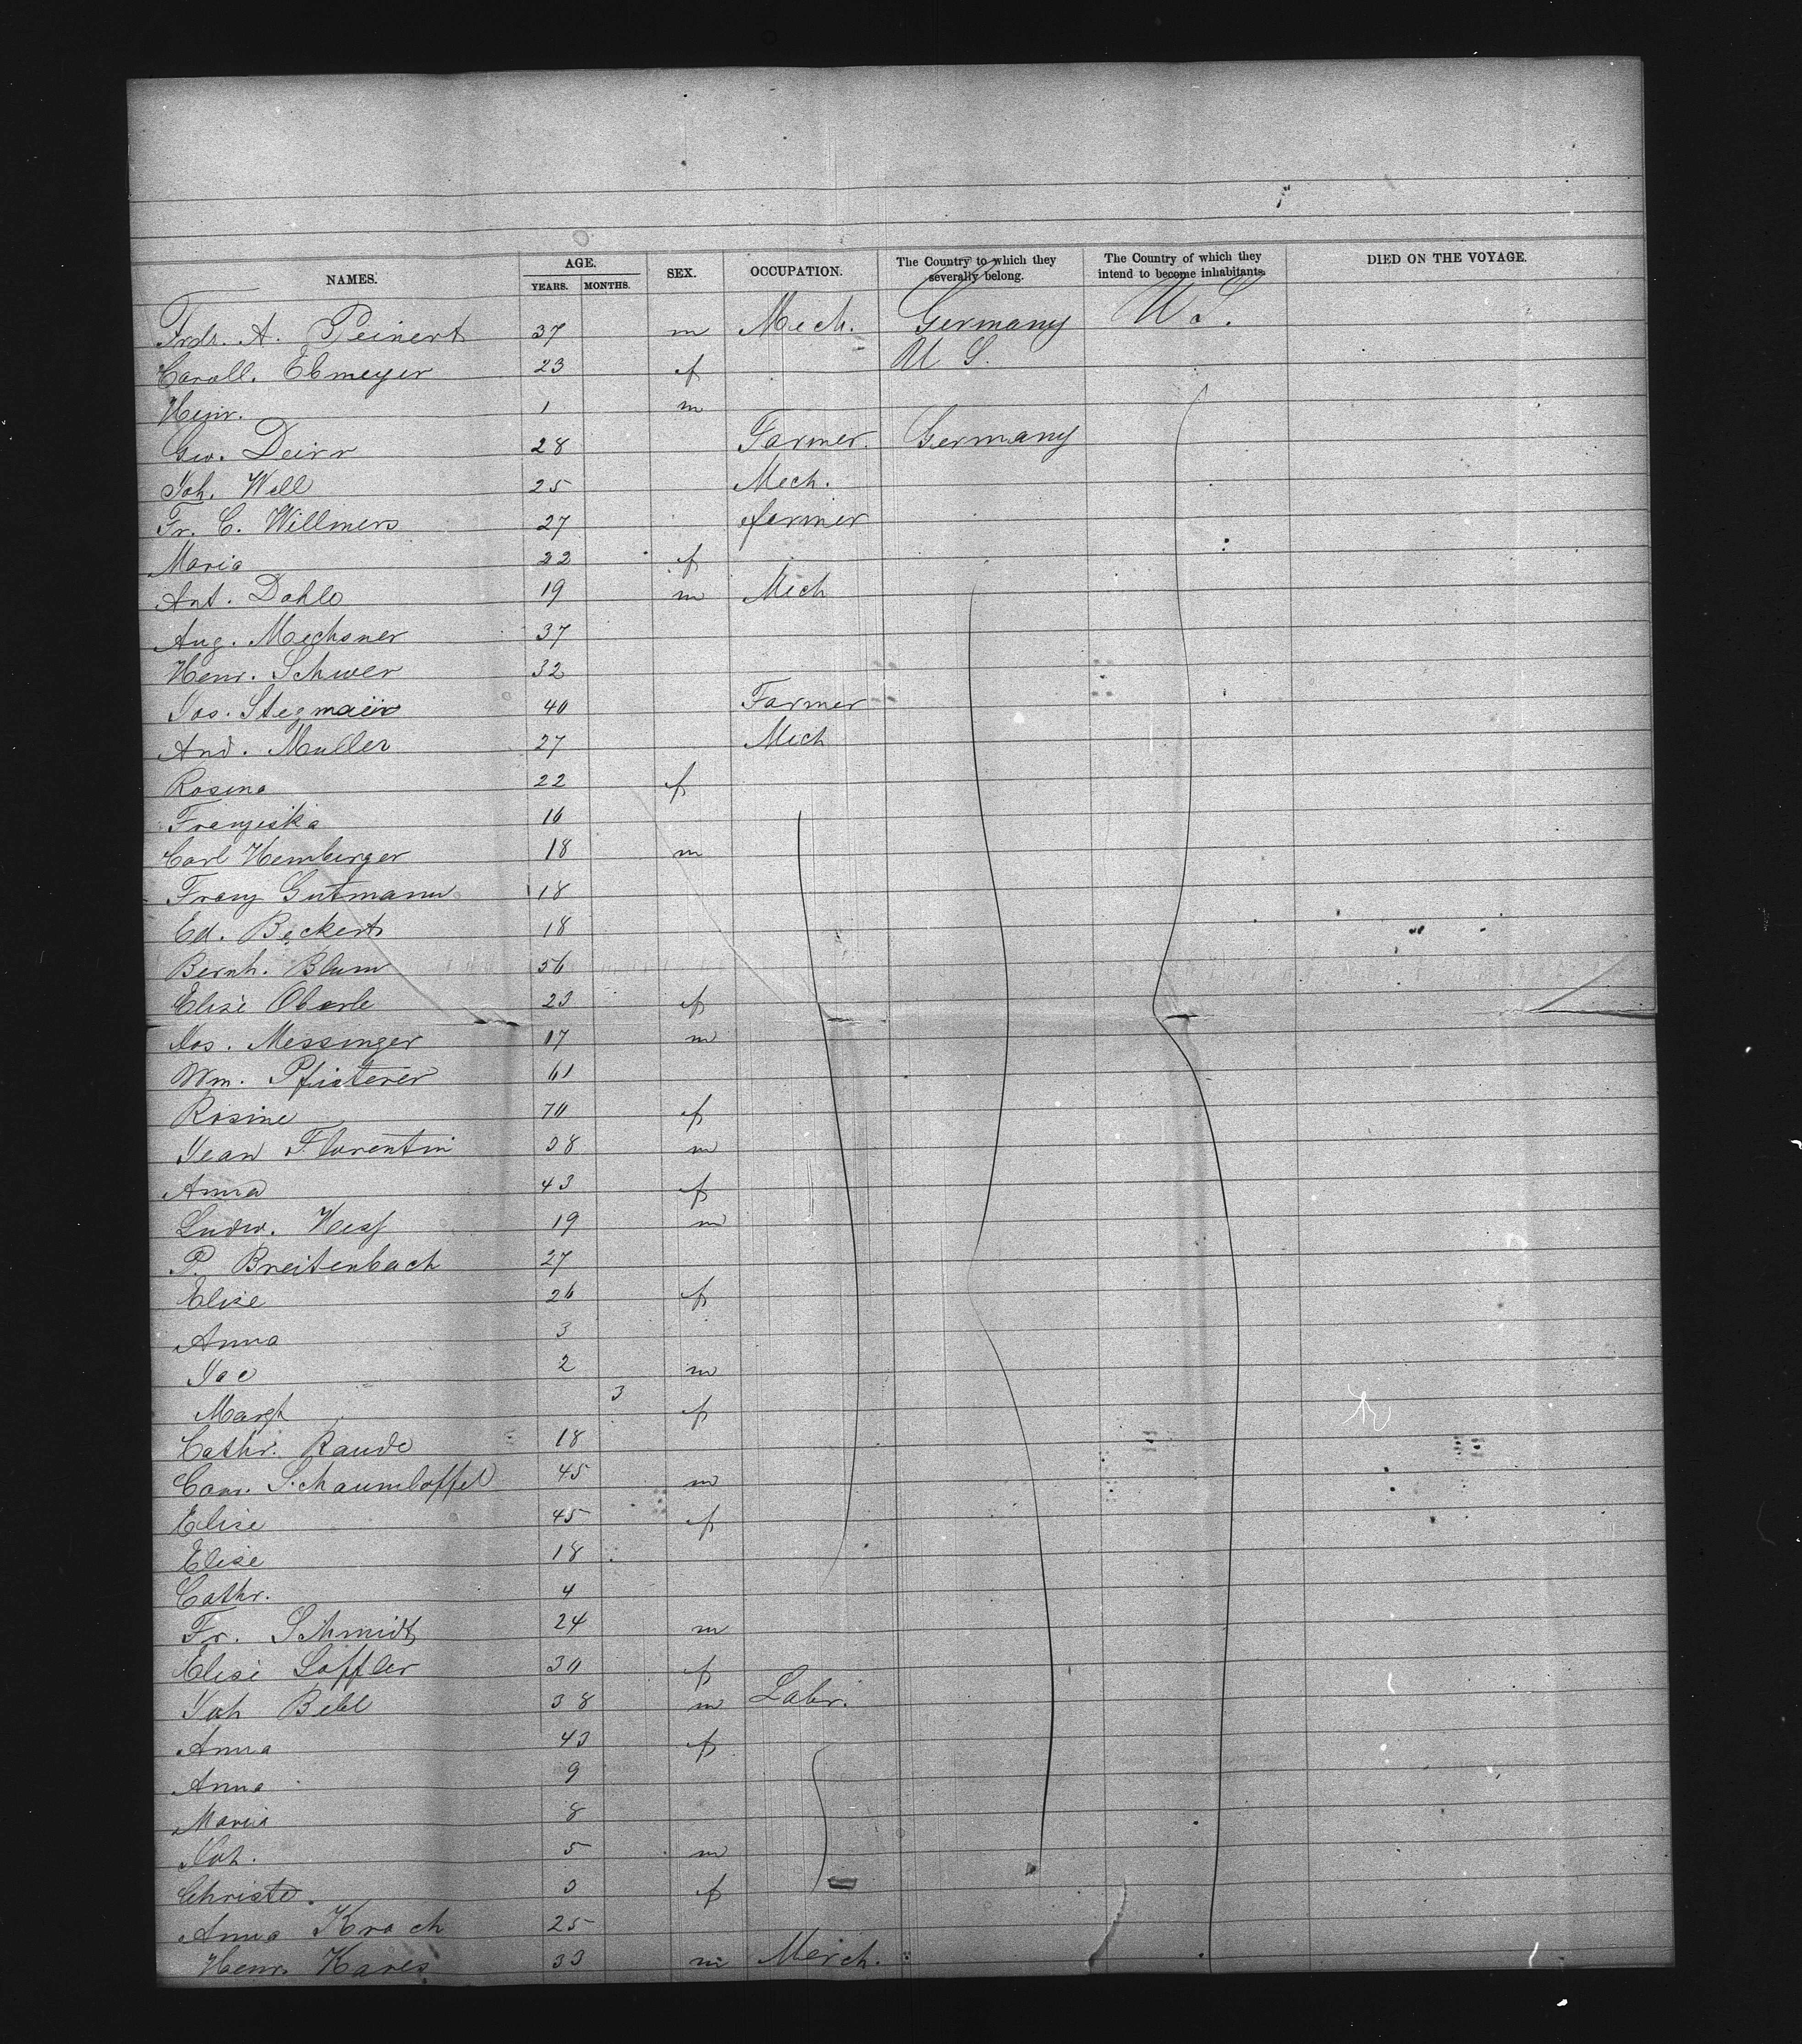 NAMES. AGE. YEARS. MONTHS. SEX. OCCUPATION. The Country to which they severally belong. The Country of which they intend to become inhabitants. DIED ON THE VOYAGE.
Frdr. A. Peinert 37 m Mech. Germany U.S.
Caroll. Ebmeyer 23 f U S.
Heinr. 1 m
Geo. Deirr 28 Farmer. Germany
Joh. Well 25 Mech.
Fr. C. Willmers 27 farmer
Maria 22 f
Ant. Dahlo 19 m Mech
Aug. Mechsner 37
Henr. Schwer 32
Jos. Stegmaier 40 Farmer
And. Muller 27 Mech
Rosina 22 f
Franziska 16
Carl Hemberger 18 m
Franz Gutmann 18
Ed. Beckert 18
Bernh. Blum 56
Elise Oberle 23 f
Jos. Messinger 17 m
Wm. Pfisterer 61
Rosine 70 f
Jean Florentin 38 m
Anna 43 f
Ludw. 19 m
P. Breitenbach 27
Elise 26 f
Anna 3
Jac 2 m
Margt 3 f
Cathr. Raude 18
Conr. Schaumloffel 45 m
Elise 45 f
Elise 18
Cathr. 4
Fr. Schmidt 24 m
Elise Loffler 30 f
Joh Bell 38 m Labr.
Anna 43 f
Anna 9
Maria 8
Joh. 5 m
Christe. 3 f
Anna Krach 25
Henr. Kares 33 m Merch.